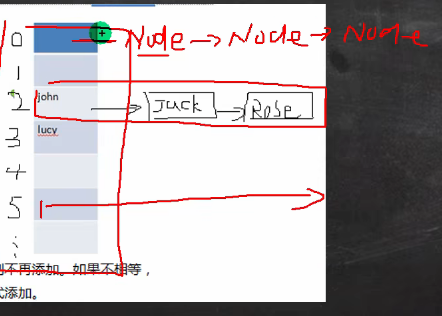 0 Node → Node → Node
1
2 john → Jack → Rose
3 lucy
4
5
⋮
则不再添加。如果不相等，
式添加。